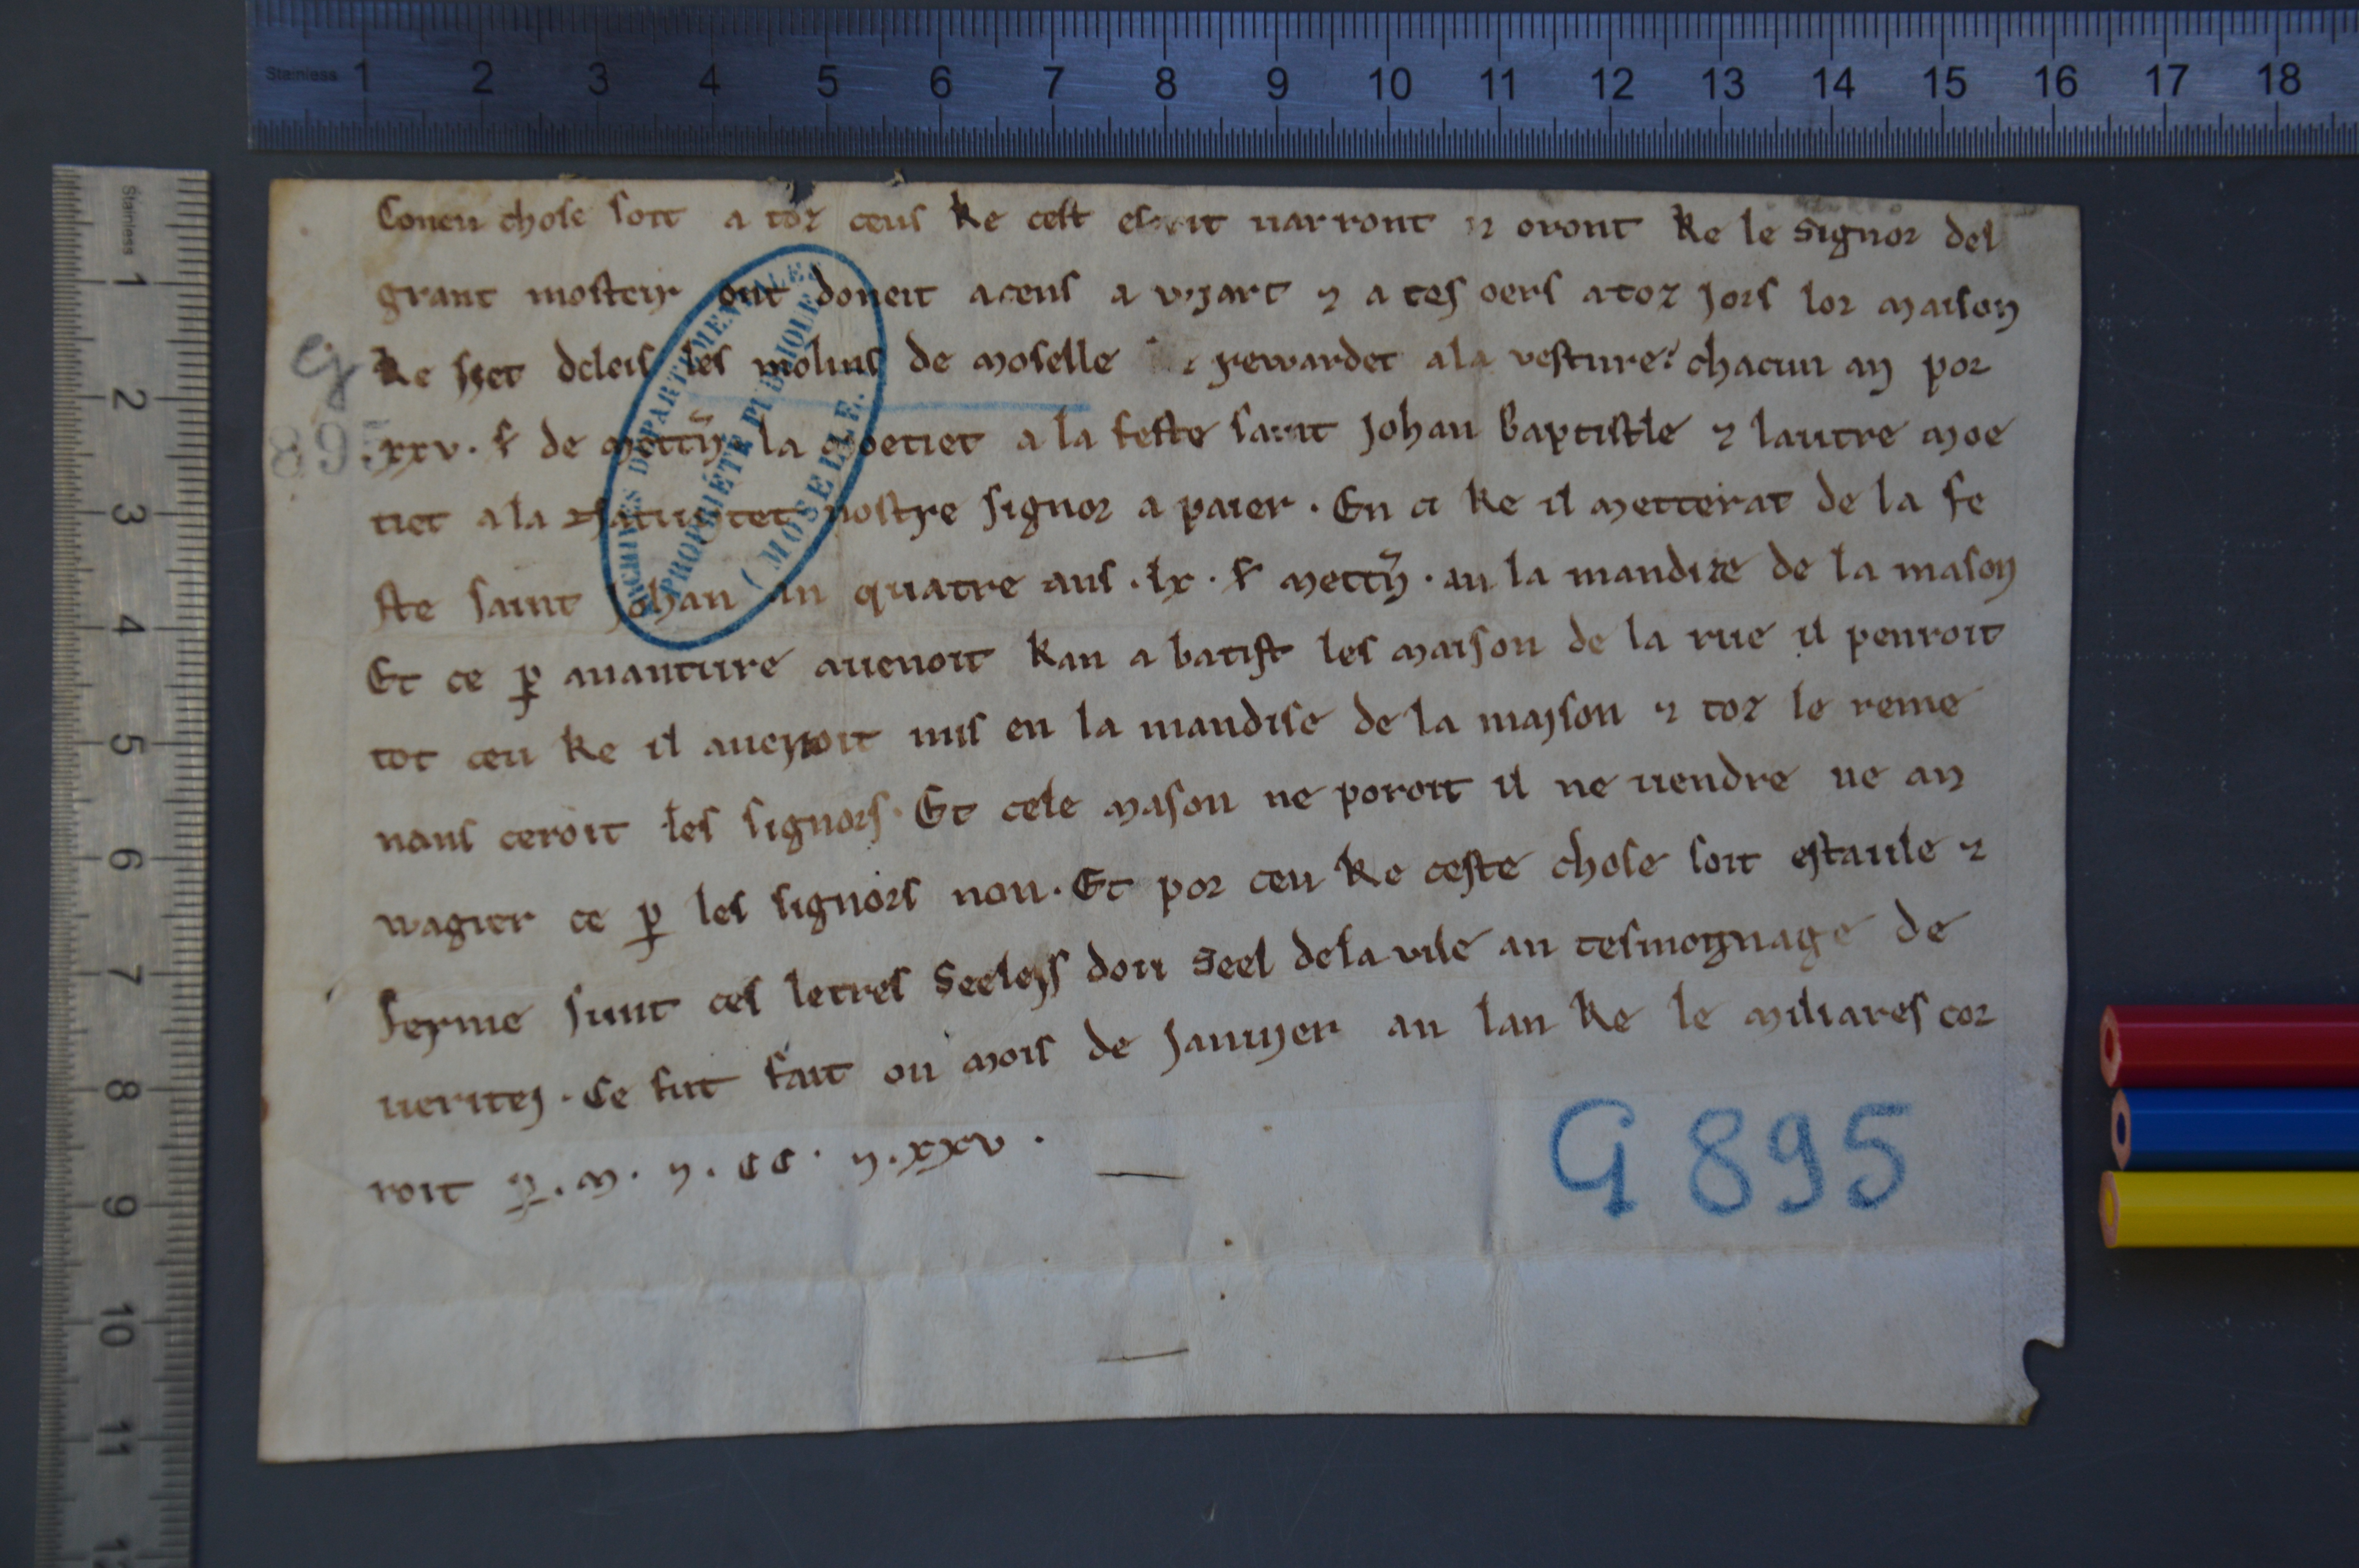 Coneu chose soit a toz ceus Ke cest escrit varront ⁊ oront Ke le Signor del
grant mosteir ont doneit acens a viart ⁊ a ses oers atoz jors lor maison
Ke siet deleis les molins de moselle rewardet ala vesture? chacun an por
.xxv. s̄ de mettn̄. la moetiet a la feste saint johan baptistle ⁊ lautre moe
tiet a la nativitet nostre signor a paier . En ci ke il metterat de la fe
ste saint johan an quatre ans .lx. s̄ mettn̄ . an la mandise de la mason
Et ce ꝑ avanture avenoit kan abatist les maison de la rue il penroit
tot ceu ke il averoit mis en la mandise de la maison ⁊ toz le reme
nans ceroit les signors. Et cele mason ne poroit il ne vendre ne an
wagier ce ꝑ les signors non. Et por ceu Ke ceste chose soit estaule ⁊
ferme sunt ces letres Seeleis dou Seel dela vile an tesmoignage de
veritei . Ce fut fait ou mois de janvier an lan Ke le miliares cor
roit ꝑ . m . ⁊ . cc . ⁊ . xxv .
g
895
G 895
ARCHIVES DÉPARTEMENTALES
PROPRIÉTÉ PUBLIQUE
( MOSELLE.
Stainless 1 2 3 4 5 6 7 8 9 10 11 12 13 14 15 16 17 18
Stainless 1 2 3 4 5 6 7 8 9 10 11 12